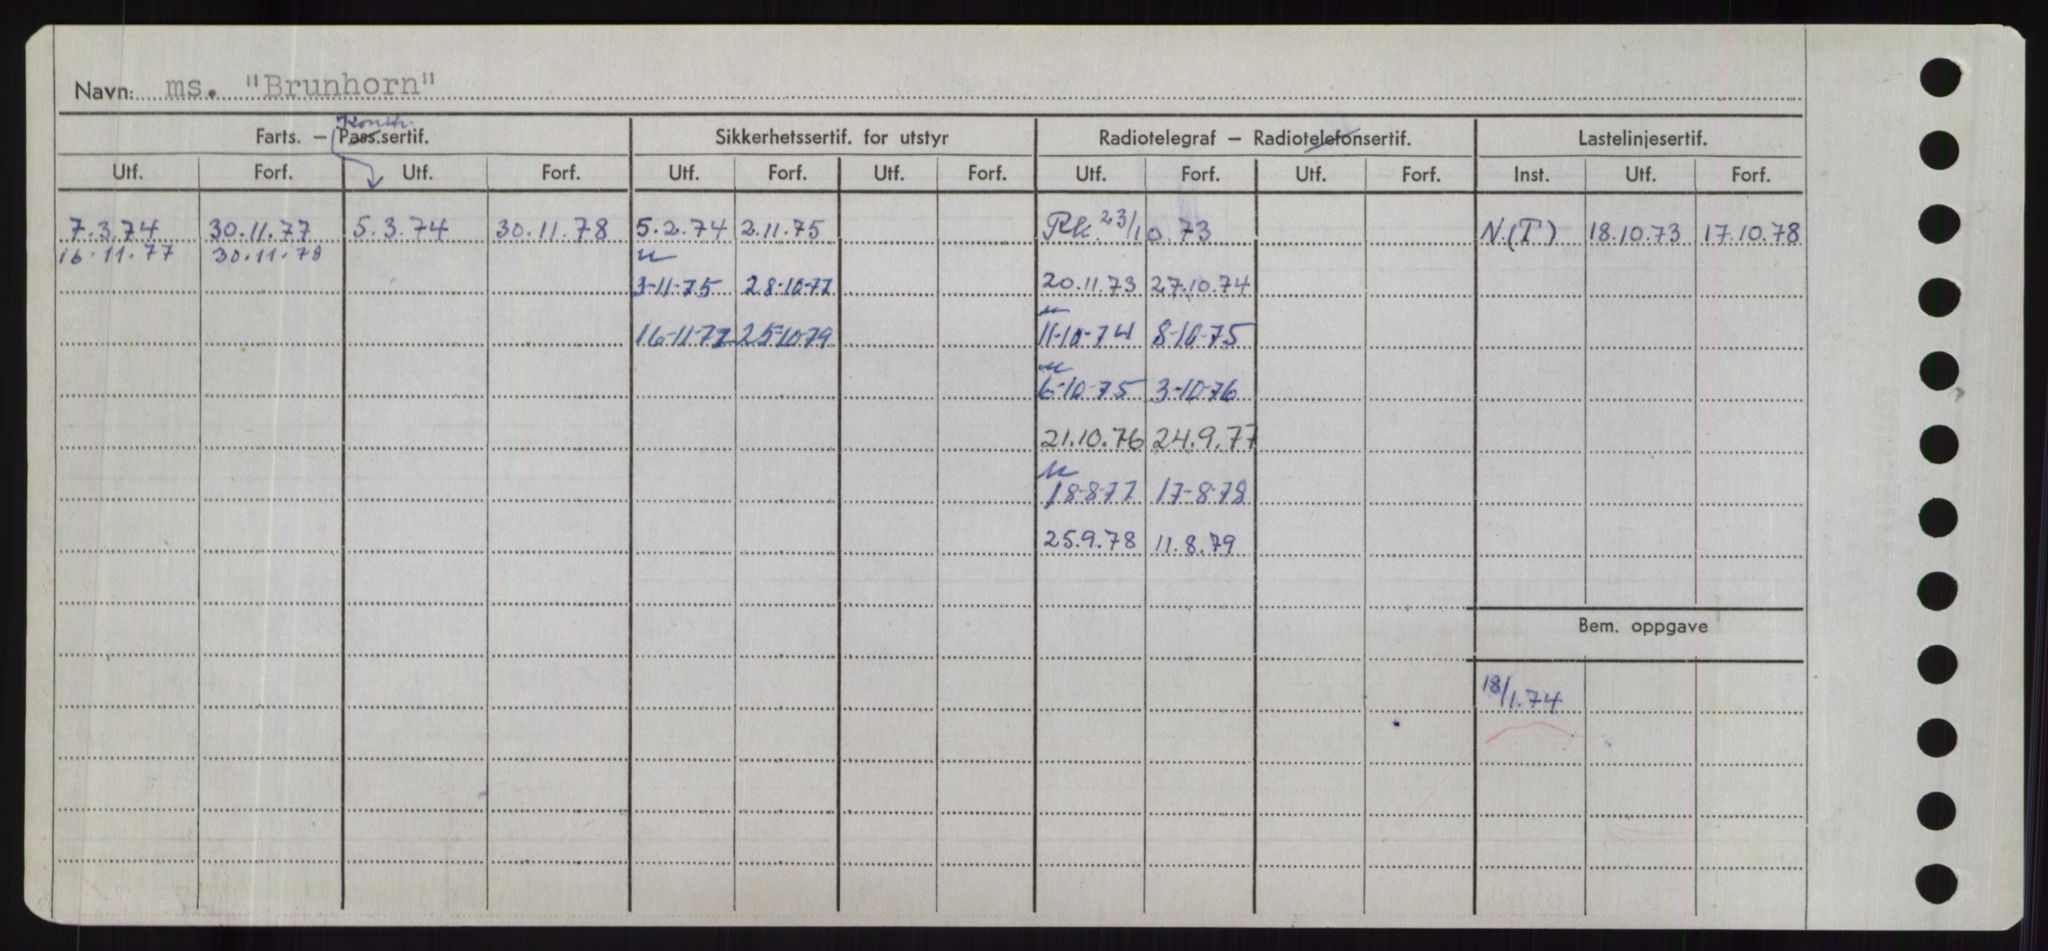 Navn: ms. "Brunhorn"
Konstr.
Farts. — Pass.sertif. Sikkerhetssertif. for utstyr Radiotelegraf — Radiotelefonsertif. Lastelinjesertif.
Utf. Forf. Utf. Forf. Utf. Forf. Utf. Forf. Utf. Forf. Utf. Forf. Inst. Utf. Forf.
7.3.74 30.11.77 5.3.74 30.11.78 5.2.74 2.11.75 Rk. 23/10.73 N.(T) 18.10.73 17.10.78
16.11.77 30.11.78
3-11-75 28-10-77 20.11.73 27.10.74
16-11-77 25-10-79 11-10-74 8-10-75
6-10-75 3-10-76
21.10.76 24.9.77
18-8-77 17-8-78
25.9.78 11.8.79
Bem. oppgave
18/1.74